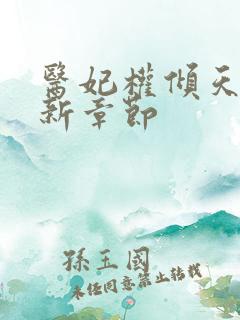 醫妃權傾天
新章節
孫玉國
未经同意禁止转载